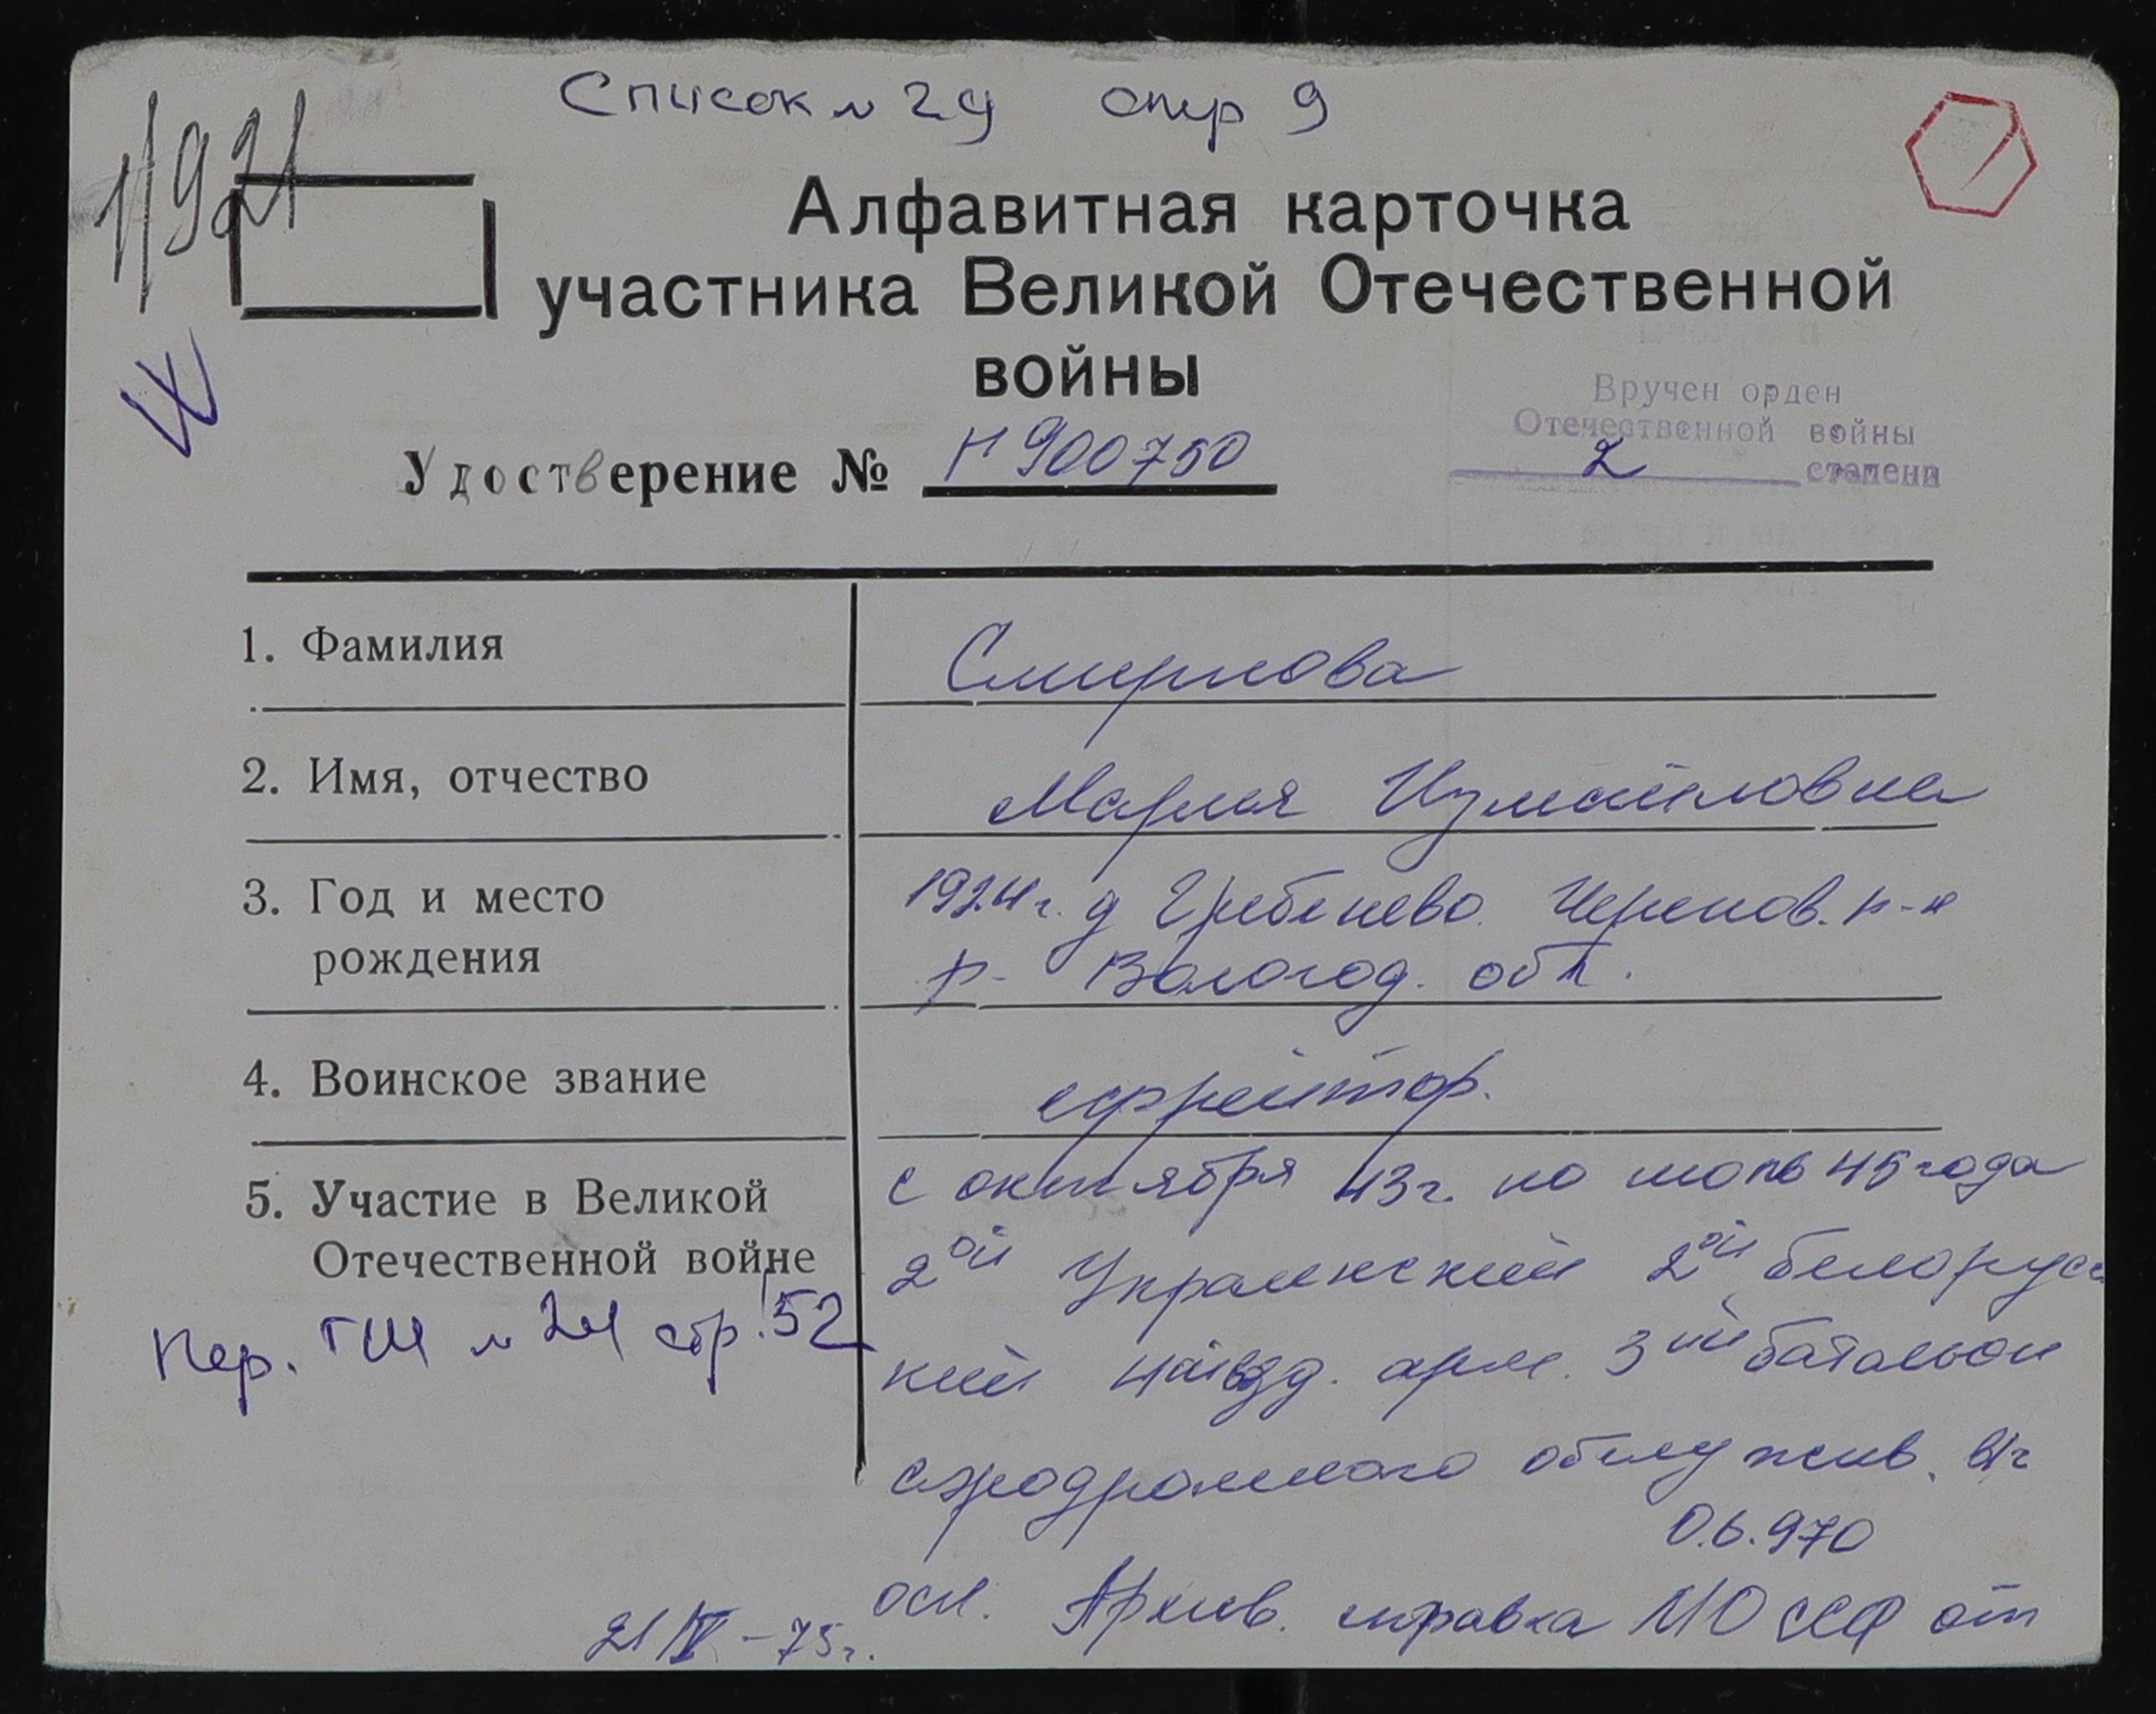 Список № 29 стр 9
1/921
Алфавитная карточка
участника Великой Отечественной
войны
Вручен орден
Отечественной войны
2 степени
Удостверение № Н 900750
1. Фамилия Смирнова
2. Имя, отчество Мария Измайловна
3. Год и место рождения
1924 г. д Гребенево. Черепов. р-н
р- Вологод. обл.
4. Воинское звание ефрейтор.
5. Участие в Великой
Отечественной войне
Пер. ГШ № 24 стр. 152
с октября 43 г. по июль 45 года
2ой Украинский 2ой белорусс
кий 4ая возд. арм. 3ий батальон
аэродромного обслужив. в/ч
06.970
осн. Архив. справка МО ССР от
21/IV - 75 г.